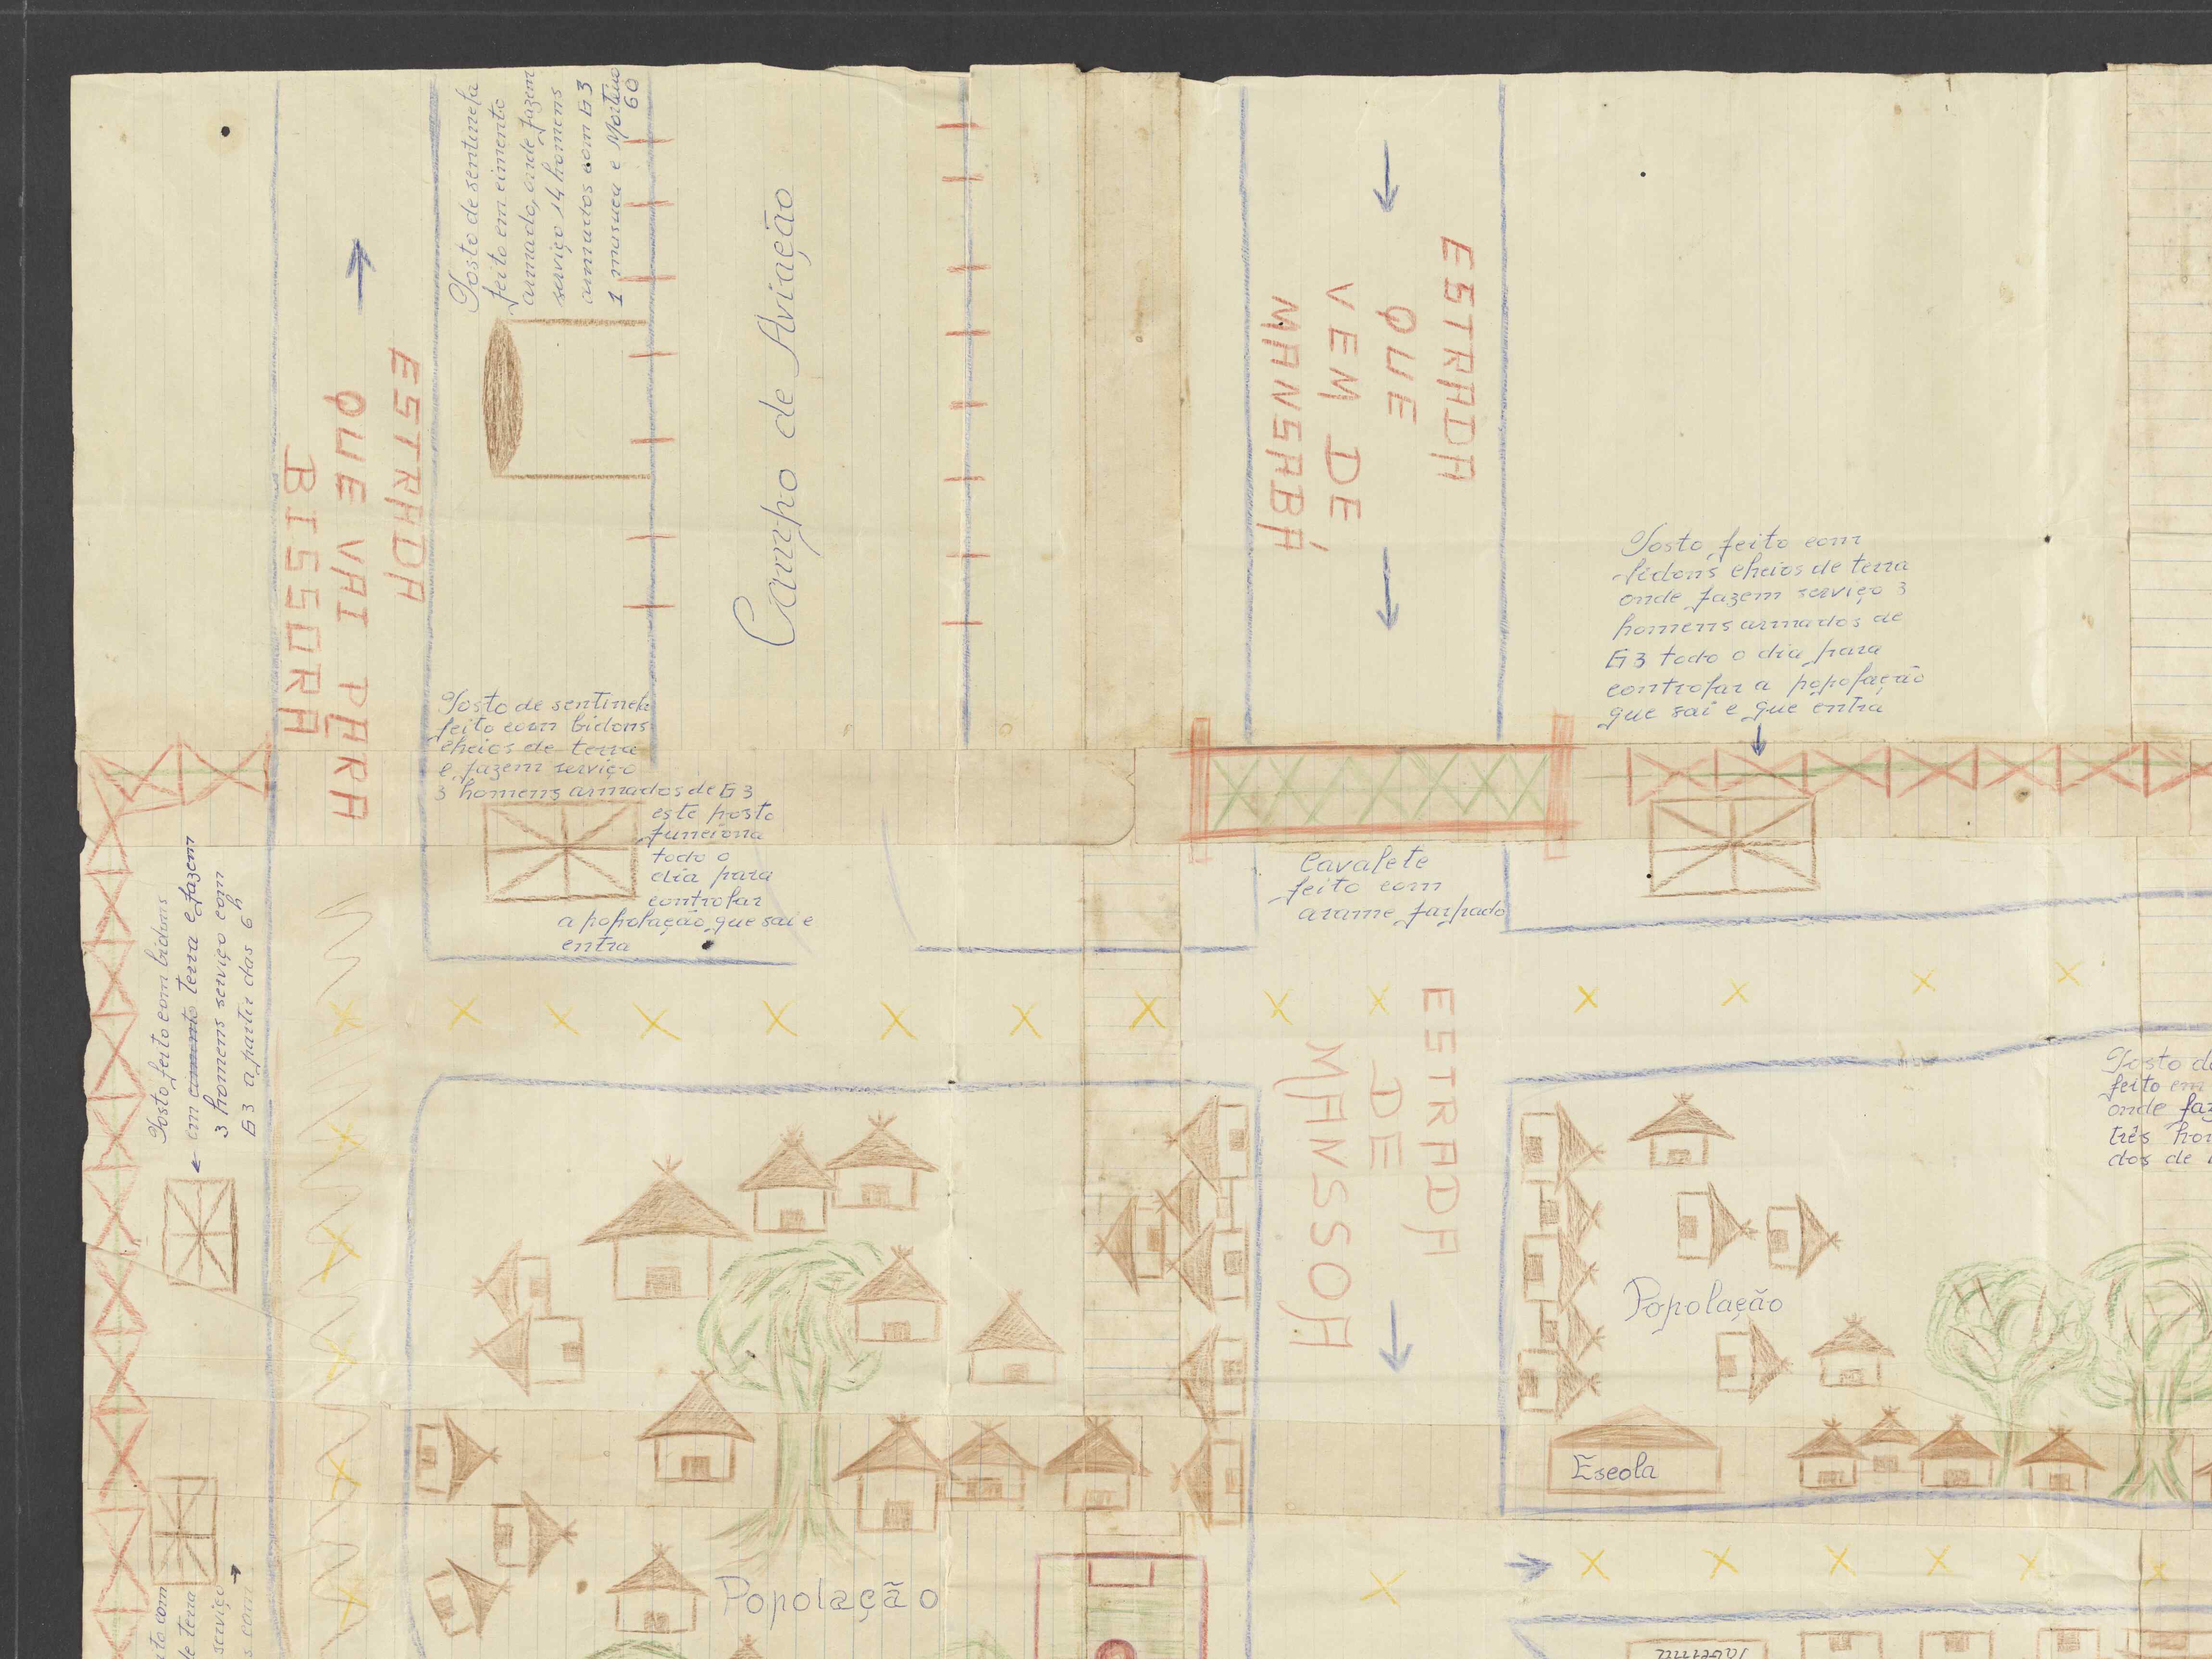 Posto de sentinela
feito em cimento
armado, onde fazem
serviço 14 homens
armados com G3
1 e Morteiro
60
ESTRADA
QUE VAI PARA
BISSORA
Campo de Aviação
ESTRADA
QUE
VEM DE
MANSABÁ
Posto feito com
bidons cheios de terra
onde fazem serviço 3
homens armados de
G3 todo o dia para
controlar a popolação
que sai e que entra
Posto de sentinela
feito com bidons
cheios de terra
e fazem serviço
3 homens armados de G3
este posto
funciona
todo o
dia para
controlar
a popolação que sai e
entra
Cavalete
feito com
arame farpado
Posto feito com bidons
em terra e fazem
3 homens serviço com
G3 a partir das 6h
ESTRADA
DE
MANSSOA
Posto d
feito em
onde faz
três ho
dos de
Popolação
Escola
Popolação
ito com
de terra
serviço
s com